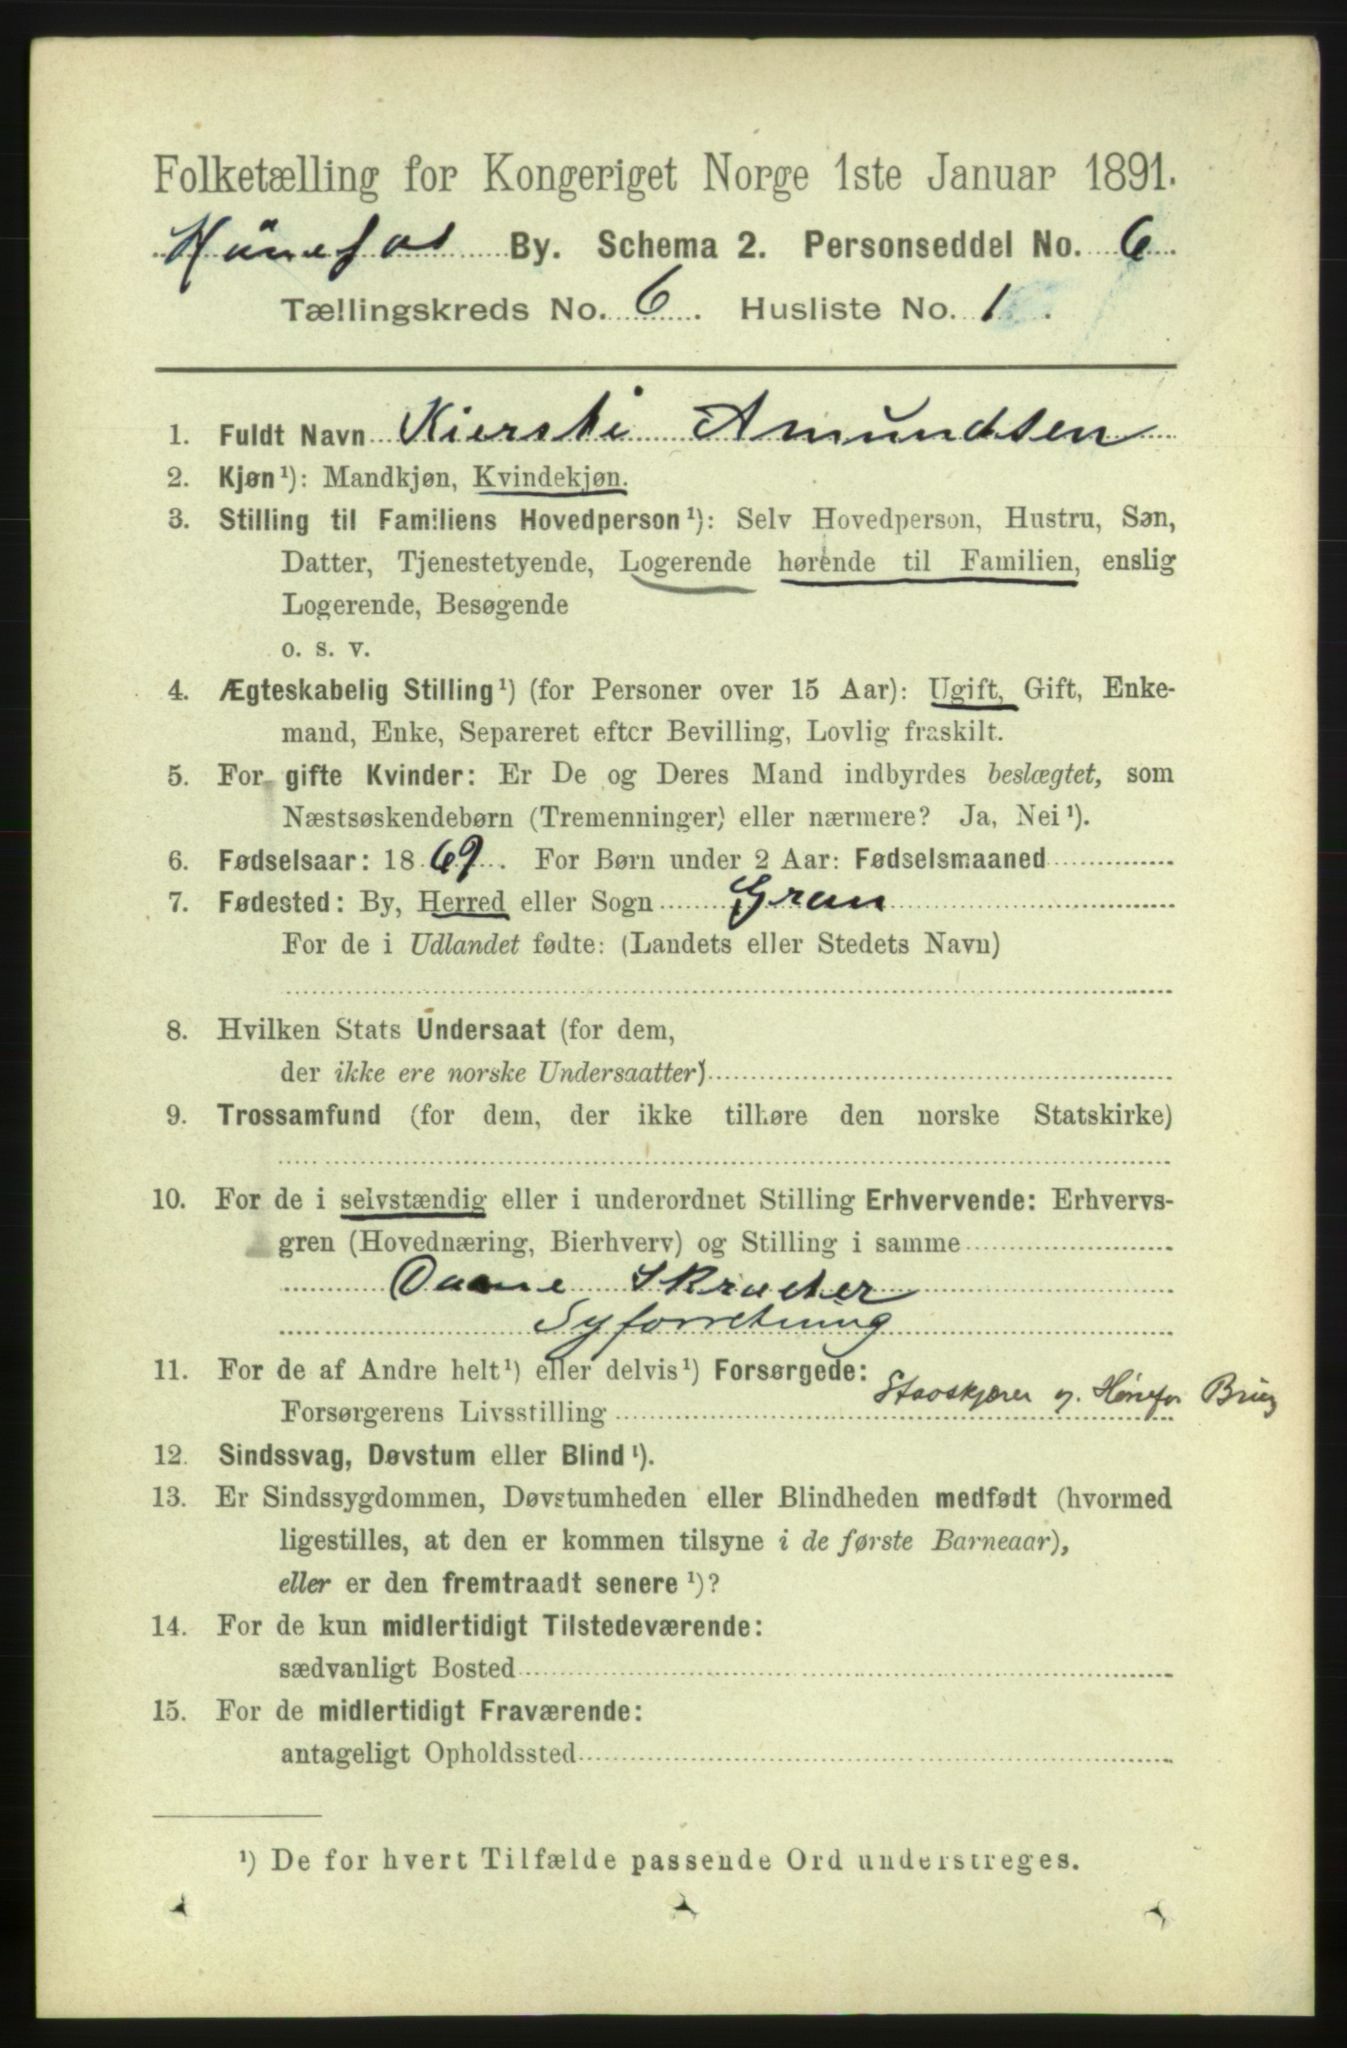 Folketælling for Kongeriget Norge 1ste Januar 1891.
Hönefos By. Schema 2. Personseddel No. 6
Tællingskreds No. 6. Husliste No. 1.
1. Fuldt Navn Kiersti Amundsen
2. Kjøn¹): Mandkjøn, Kvindekjøn.
3. Stilling til Familiens Hovedperson¹): Selv Hovedperson, Hustru, Søn,
Datter, Tjenestetyende, Logerende hørende til Familien, enslig
Logerende, Besøgende
o. s. v.
4. Ægteskabelig Stilling¹) (for Personer over 15 Aar): Ugift, Gift, Enke-
mand, Enke, Separeret efter Bevilling, Lovlig fraskilt.
5. For gifte Kvinder: Er De og Deres Mand indbyrdes beslægtet, som
Næstsøskendebørn (Tremenninger) eller nærmere? Ja, Nei¹).
6. Fødselsaar: 1869. For Børn under 2 Aar: Fødselsmaaned
7. Fødested: By, Herred eller Sogn Gran
For de i Udlandet fødte: (Landets eller Stedets Navn)
8. Hvilken Stats Undersaat (for dem,
der ikke ere norske Undersaatter)
9. Trossamfund (for dem, der ikke tilhøre den norske Statskirke)
10. For de i selvstændig eller i underordnet Stilling Erhvervende: Erhvervs-
gren (Hovednæring, Bierhverv) og Stilling i samme
Dame Skræder
Syforretning
11. For de af Andre helt¹) eller delvis¹) Forsørgede:
Forsørgerens Livsstilling Stavskjærer Hønefos Brug
12. Sindssvag, Døvstum eller Blind¹).
13. Er Sindssygdommen, Døvstumheden eller Blindheden medfødt (hvormed
ligestilles, at den er kommen tilsyne i de første Barneaar),
eller er den fremtraadt senere¹)?
14. For de kun midlertidigt Tilstedeværende:
sædvanligt Bosted
15. For de midlertidigt Fraværende:
antageligt Opholdssted
¹) De for hvert Tilfælde passende Ord understreges.